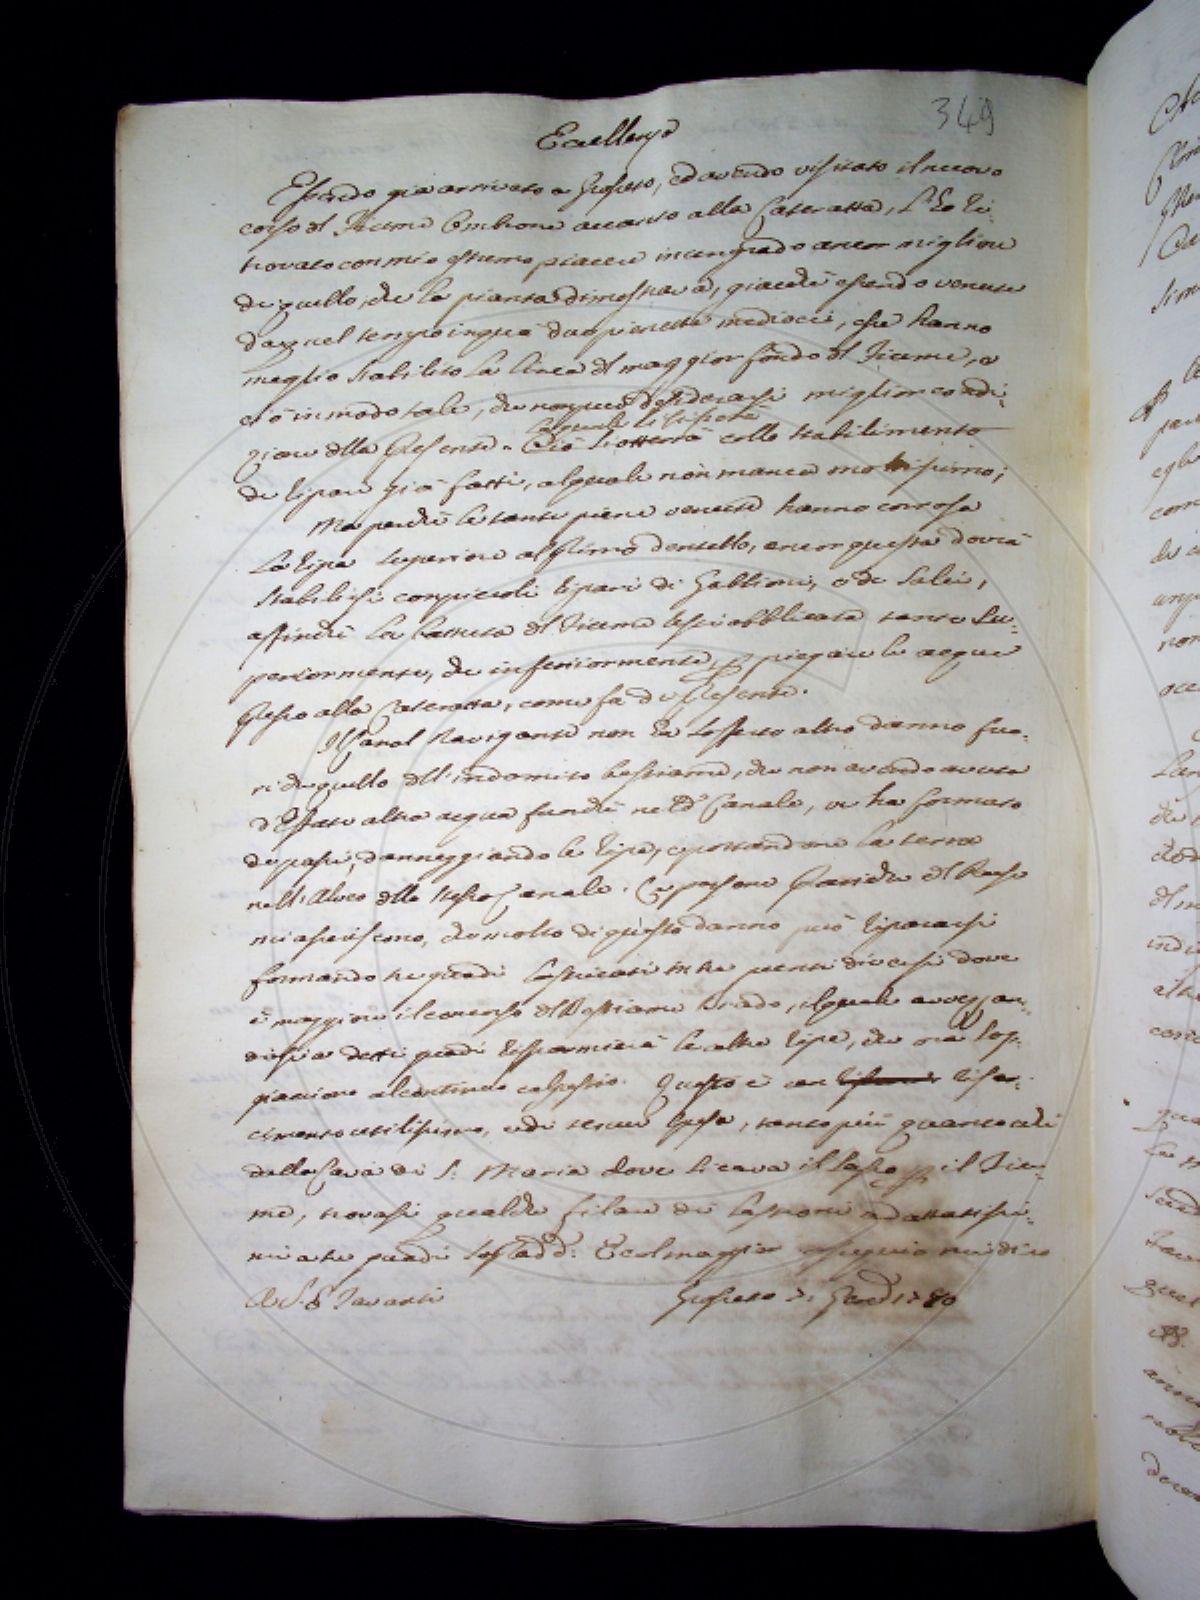 349
Eccellenza
Essendo già arrivato a Grosseto, ed avendo visitato il nuovo
corso del Fiume Ombrone accanto alla Cateratta, l'ho ri-
trovato con mio estremo piacere in un grado ancor migliore
di quello, che la pianta dimostrava, giacchè essendo venute
da quel tempo in quà due pienette mediocri, che hanno
meglio stabilito la linea del maggior fondo del Fiume, e
ciò in modo tale, che non può desiderarsi miglior condi-
zione della presente. Ciò si otterrà collo stabilimento
de ripari già fatti, al quale non manca moltissimo;
Ma perchè le tante piene venute hanno corrosa
la ripa superiore al primo dentello, ancor questa dovrà
stabilirsi con piccoli ripari di Gabbioni, e di Salci,
affinchè la battuta del Fiume resti obbligata tanto su-
periormente, che inferiormente, p piegare le acque
presso alla Cateratta, come fa di presente.
Il Canal Navigante non ha sofferto altro danno fuo-
ri di quello dell'indomito bestiame, che non avendo avuta
d'Estate altra acqua fuorchè ne d.o Canale, vi ha formato
de passi, danneggiando le ripe, e portandone la terra
nell'Alveo dello stesso Canale. Le persone pratiche del Paese
mi asseriscono, che molto di questo danno può ripararsi
formando tre guadi lastricati in tre punti diversi dove
è maggiore il concorso del Bestiame brado, il quale avvezzan-
dosi a detti guadi risparmierà le altre ripe, che ora sog-
giacciono al continuo calpestio. Questo è un risar-
cimento utilissimo, e di tenue spesa, tanto più quanto che
dalla Cava di S. Maria dove si cava il sasso p il Fiu-
me, trovasi qualche filare di lastroni adattatissi-
mi a tre guadi sopradd. E col maggior ossequio mi dico
Di S. E. Favanti Grosseto 21 Genn 1780